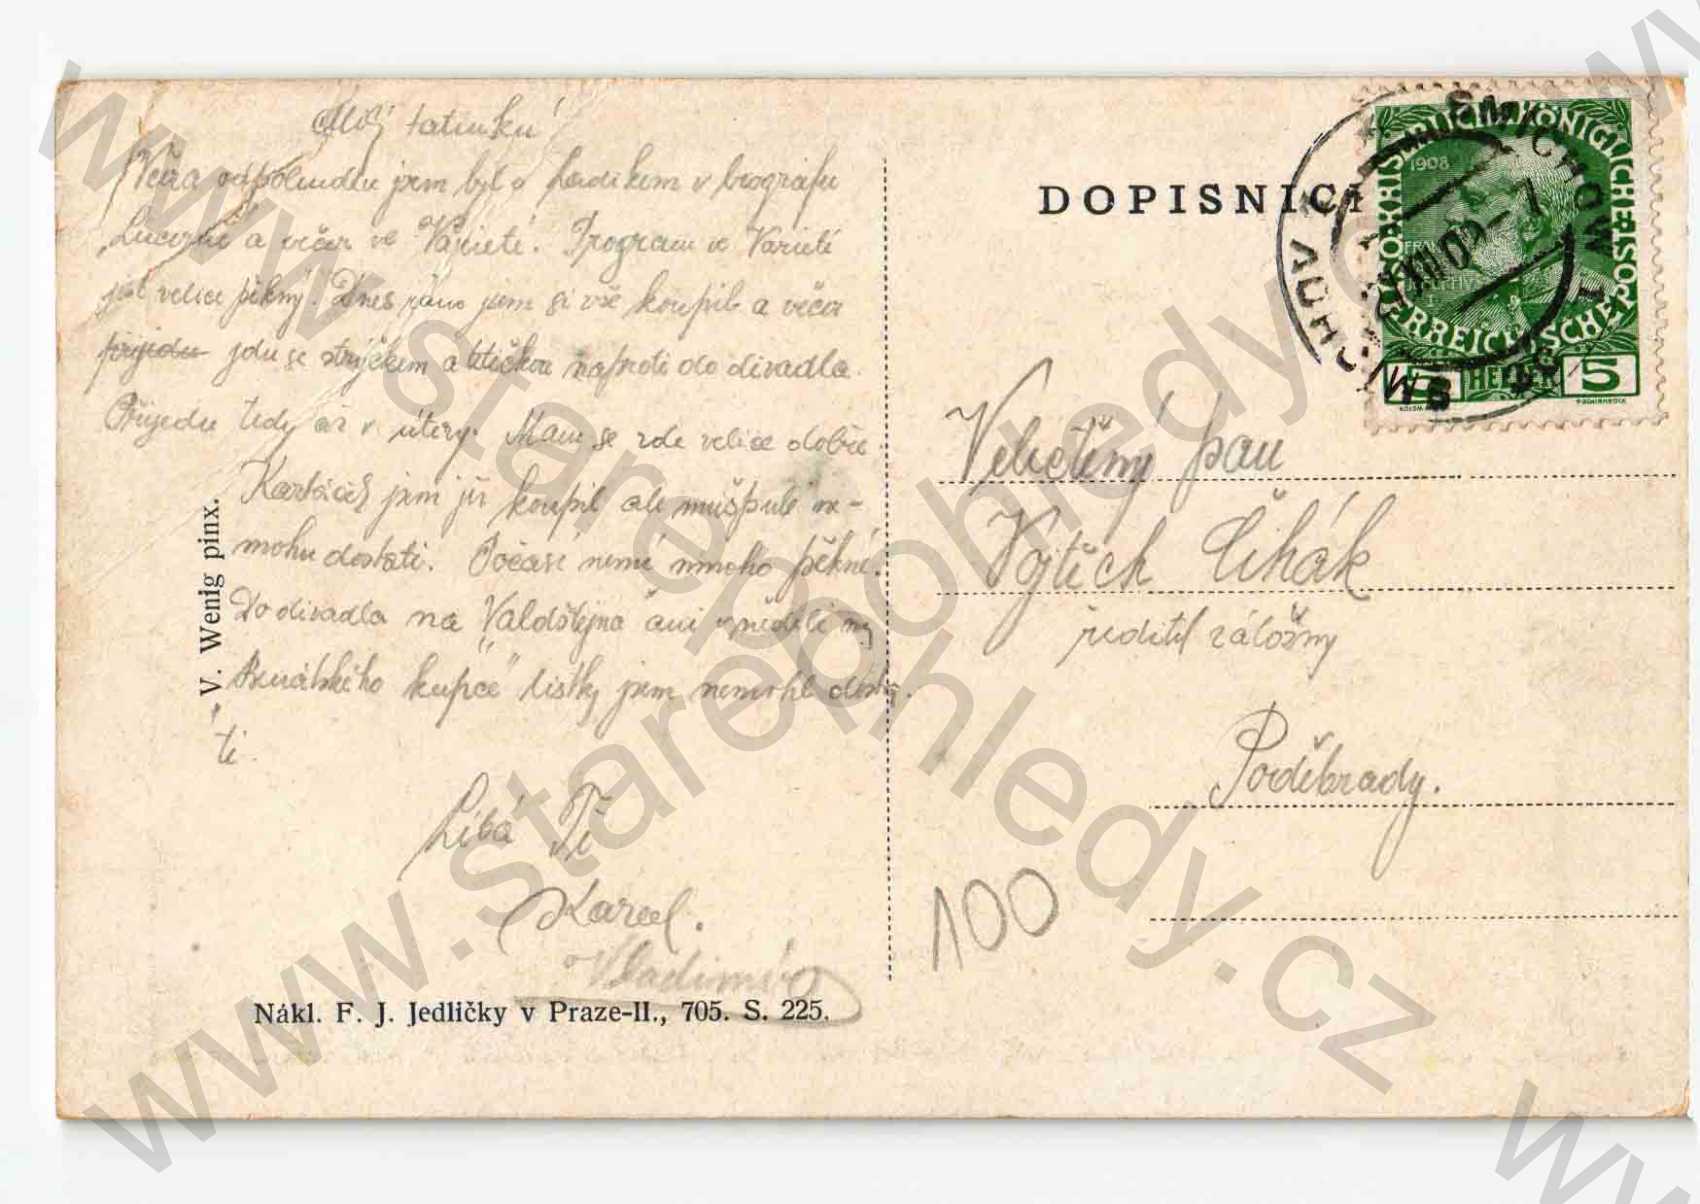 Můj tatínku!
Včera odpoledne jsem byl s Ladíkem v biografu
"Lucerně" a večer ve "Varieté". Program ve Varieté
jest velice pěkný. Dnes ráno jsem si vše koupil a večer
přijedu jdu se strýčkem a tetičkou naproti do divadla.
Přijedu tedy až v úterý. Mám se zde velice dobře.
Kartáček jsem již koupil ale mušpulé ne-
mohu dostati. Počasí nemá mnoho pěkné.
Do divadla na "Valdštejna" ani v neděli na
Benátského kupce" lístky jsem nemohl dosta-
ti.
Líbá Tě
Karel.
Vladimír
V. Wenig pinx.
Nákl. F. J. Jedličky v Praze-II., 705. S. 225.
DOPISNICE
Velectěný pan
Vojtěch Čihák
ředitel záložny
Poděbrady.
100
1908
5 HELLER 5
SMÍCHOV 1
SMICHOW 1
www.starepohledy.cz
www.starepohledy.cz